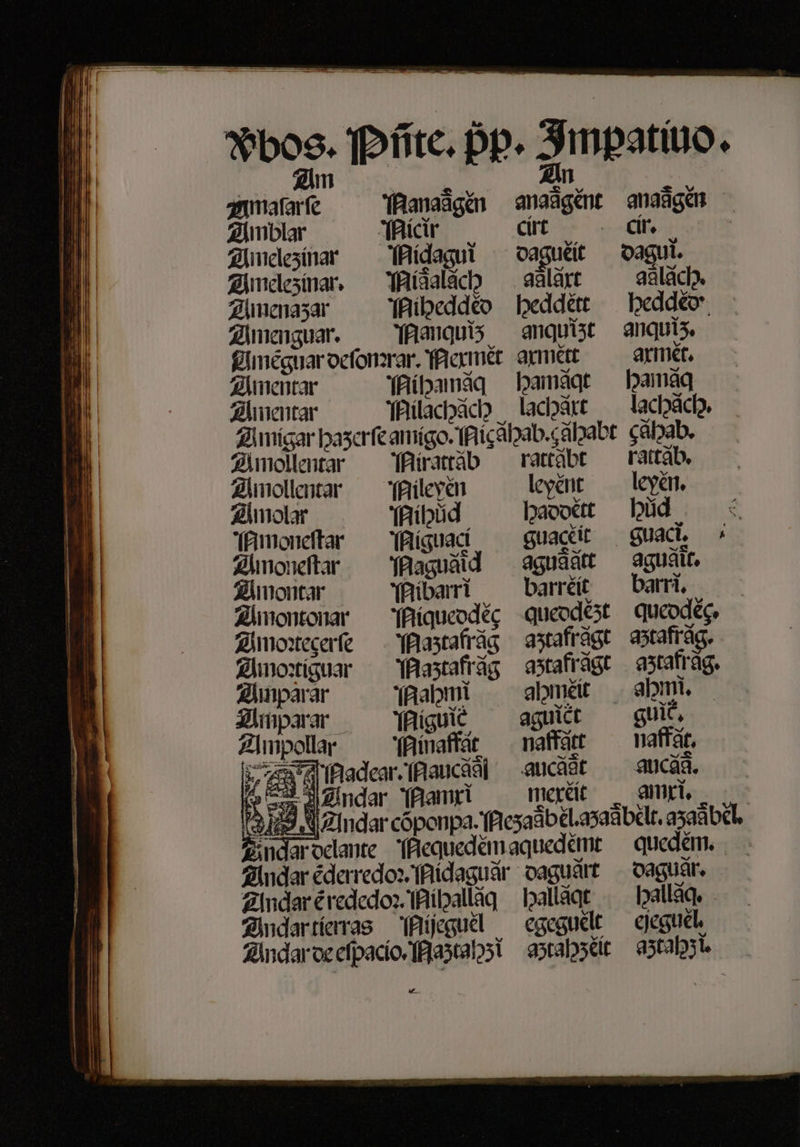 Vbos. Pñte. p̄p. Impatiuo.
Am An
Amasarse Nanaâgĕn anaâgĕnt anaâgĕn
Amblar Nicir cirt cir.
Amelezinar Nidagui daguĕit dagui.
Amelezinar. Niâalăch aâlărt aâlăch.
Amenazar Niheddĕo heddĕtt heddĕo.
Amenguar. Nanquiz anquizt anquiz.
Améguar desonrrar. Nexmĕt axmĕtt axmĕt.
Amentar Nihamăq hamăqt hamăq
Amentar Nilachăch lachăxt lachăch.
Amigar hazerse amigo. Niçăhab. çăhabt çăhab.
Amollentar Nirattăb rattăbt rattăb.
Amollentar Nileyĕn leyĕnt leyĕn.
Amolar Nihŭd haddĕtt hŭd
Amonestar Niguaci guacĕit guaci.
Amonestar Naguăid aguăătt aguăit.
Amontar Nibarri barrĕit barri.
Amontonar Niqueodĕç queodĕzt queodĕç.
Amortecerse Naztafrăg aztafrăgt aztafrăg.
Amortiguar Naztafrăg aztafrăgt aztafrăg.
Amparar Nahmi ahmĕit ahmi.
Amparar Niguiĕ aguiĕt guiĕ.
Ampollar Ninaffăt naffătt naffăt.
Nadear. Naucăâ aucăât aucăâ.
Andar Namxi mexĕit amxi.
Andar cóponpa. Nezaâbĕl. azaâbĕlt. azaâbĕl.
Andar delante Nequedĕm aquedĕmt quedĕm.
Andar éderredor. Nidaguăr daguărt daguăr.
Andar é rededor. Nihallăq hallăqt hallăq.
Andar tierras Nijeguĕl egeguĕlt ejeguĕl.
Andar de espacio. Naztahzi aztahzĕit aztahzi.